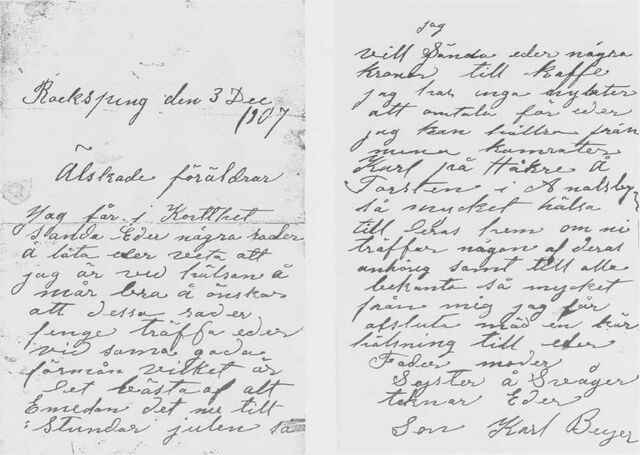 Rockspung den 3 Dec
1907
Älskade föräldrar
Jag får i Korthet
sända Eder några rader
å låta eder veta att
jag är vid hälsan å
mår bra å önskar
att dessa rader
finge träffa eder
vid sama goda
förmån vilket är
det bästa af alt
Emedan det nu till
stundar julen så
jag
vill sända eder några
kronor till kaffe
jag har inga nyheter
att omtala för eder
jag kan hälsa från
mina kamrater
Karl på Håkre å
Torsten i
så mycket hälsa
till deras hem om ni
träffar någon af deras
anhörig samt till alla
bekanta så mycket
från mig jag får
afsluta mäd en kär
hälsning till eder
Fader moder
Syster å Svåger
teknar Eder
Son Karl Beyer